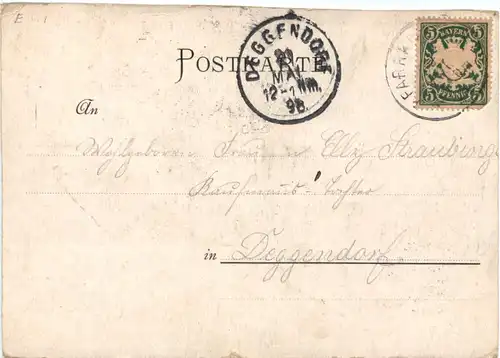 E 1
POSTKARTE
DEGGENDORF
20
MAI
12-1 Nm.
96.
FARR
BAYERN
5 5
PFENNIG
5 5
An
Wohlgeboren
Straubinger
Kaufmanns-Tochter
in Deggendorf.